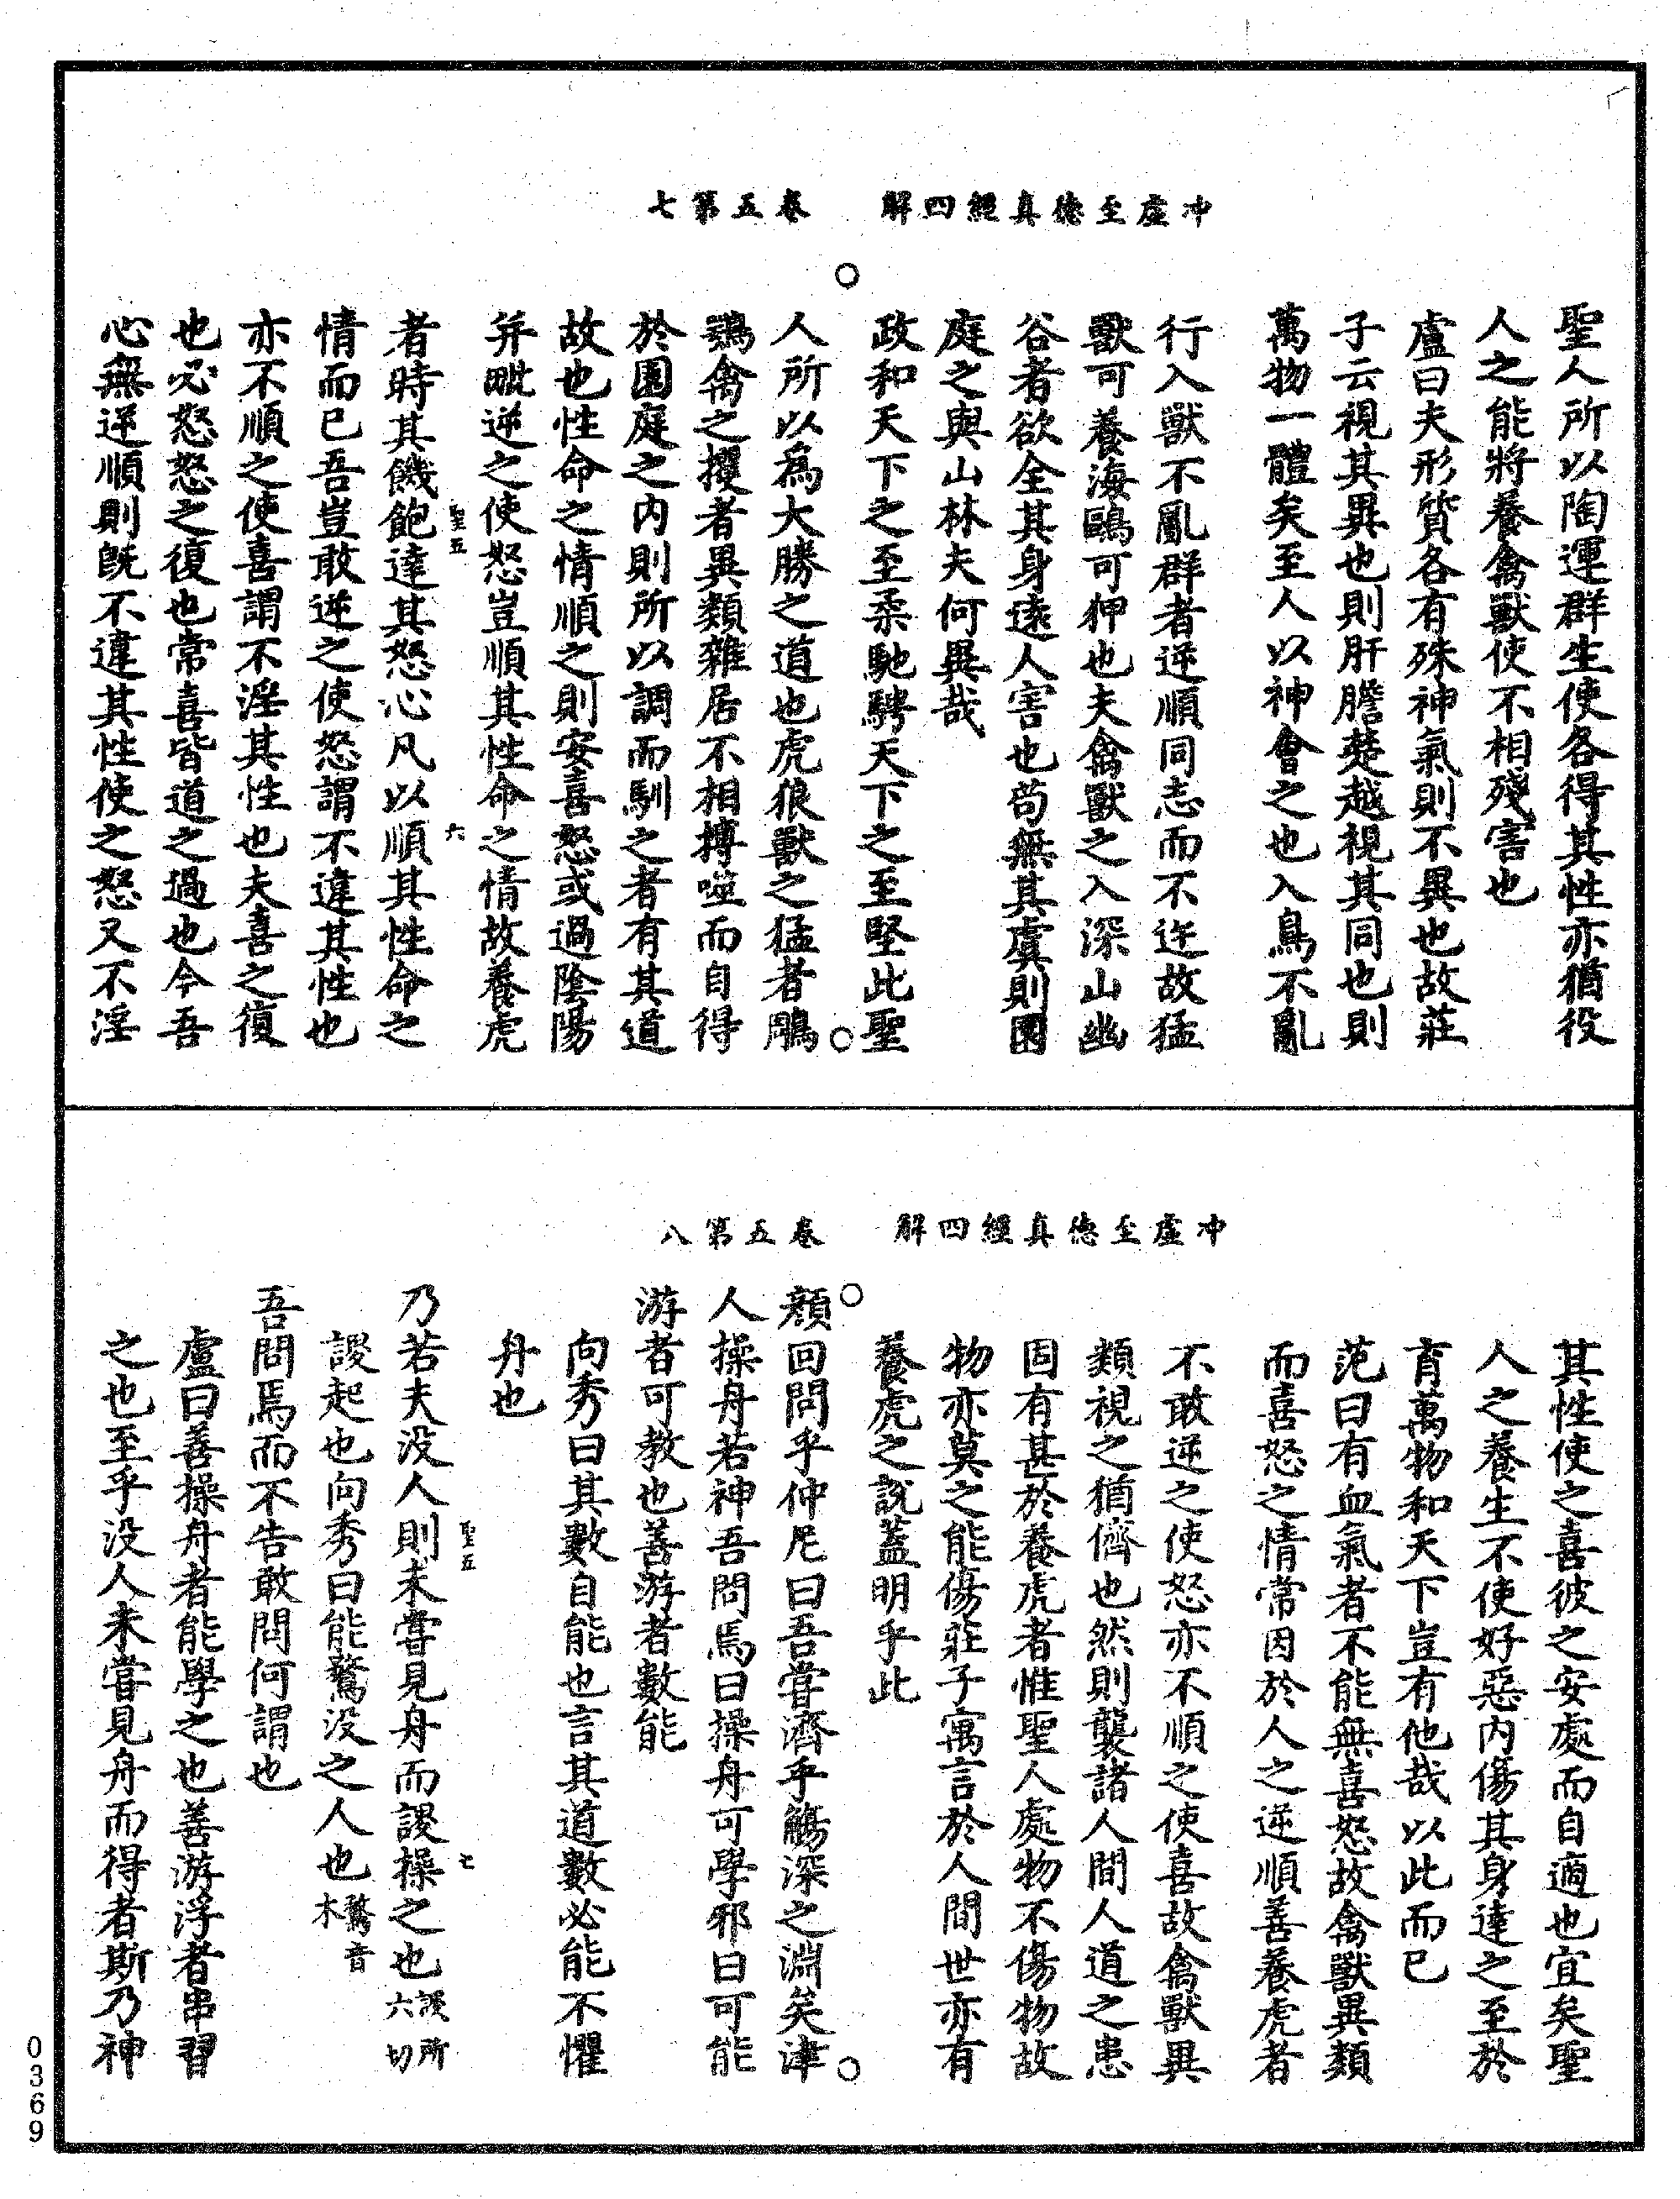 冲虛至德真經四解　卷五第七
聖人所以陶運群生使各得其性亦猶役
人之能將養禽獸使不相殘害也
盧曰夫形質各有殊神氣則不異也故莊
子云視其異也則肝膽楚越視其同也則
萬物一體矣至人以神會之也入鳥不亂
行入獸不亂群者逆順同志而不迕故猛
獸可養海鷗可狎也夫禽獸之入深山幽
谷者欲全其身遠人害也苟無其虞則園
庭之與山林夫何異哉
政和天下之至柔馳騁天下之至堅此聖
人所以為大勝之道也虎狼獸之猛者鵰
鶚禽之攫者異類雜居不相搏噬而自得
於園庭之內則所以調而馴之者有其道
故也性命之情順之則安喜怒或過陰陽
并毗逆之使怒豈順其性命之情故養虎
者時其饑飽達其怒心凡以順其性命之
情而已吾豈敢逆之使怒謂不違其性也
亦不順之使喜謂不淫其性也夫喜之復
也必怒怒之復也常喜皆道之過也今吾
心無逆順則既不違其性使之怒又不淫
聖五
六
冲虛至德真經四解　卷五第八
其性使之喜彼之安處而自適也宜矣聖
人之養生不使好惡內傷其身達之至於
育萬物和天下豈有他哉以此而已
范曰有血氣者不能無喜怒故禽獸異類
而喜怒之情常因於人之逆順善養虎者
不敢逆之使怒亦不順之使喜故禽獸異
類視之猶儕也然則襲諸人間人道之患
固有甚於養虎者惟聖人處物不傷物故
物亦莫之能傷莊子寓言於人間世亦有
養虎之說蓋明乎此
顏回問乎仲尼曰吾嘗濟乎觴深之淵矣津
人操舟若神吾問焉曰操舟可學邪曰可能
游者可教也善游者數能
向秀曰其數自能也言其道數必能不懼
舟也
乃若夫没人則未嘗見舟而謖操之也謖所六切
謖起也向秀曰能鶩没之人也鶩音木
吾問焉而不告敢問何謂也
盧曰善操舟者能學之也善游浮者串習
之也至乎没人未嘗見舟而得者斯乃神
聖五
七
0369